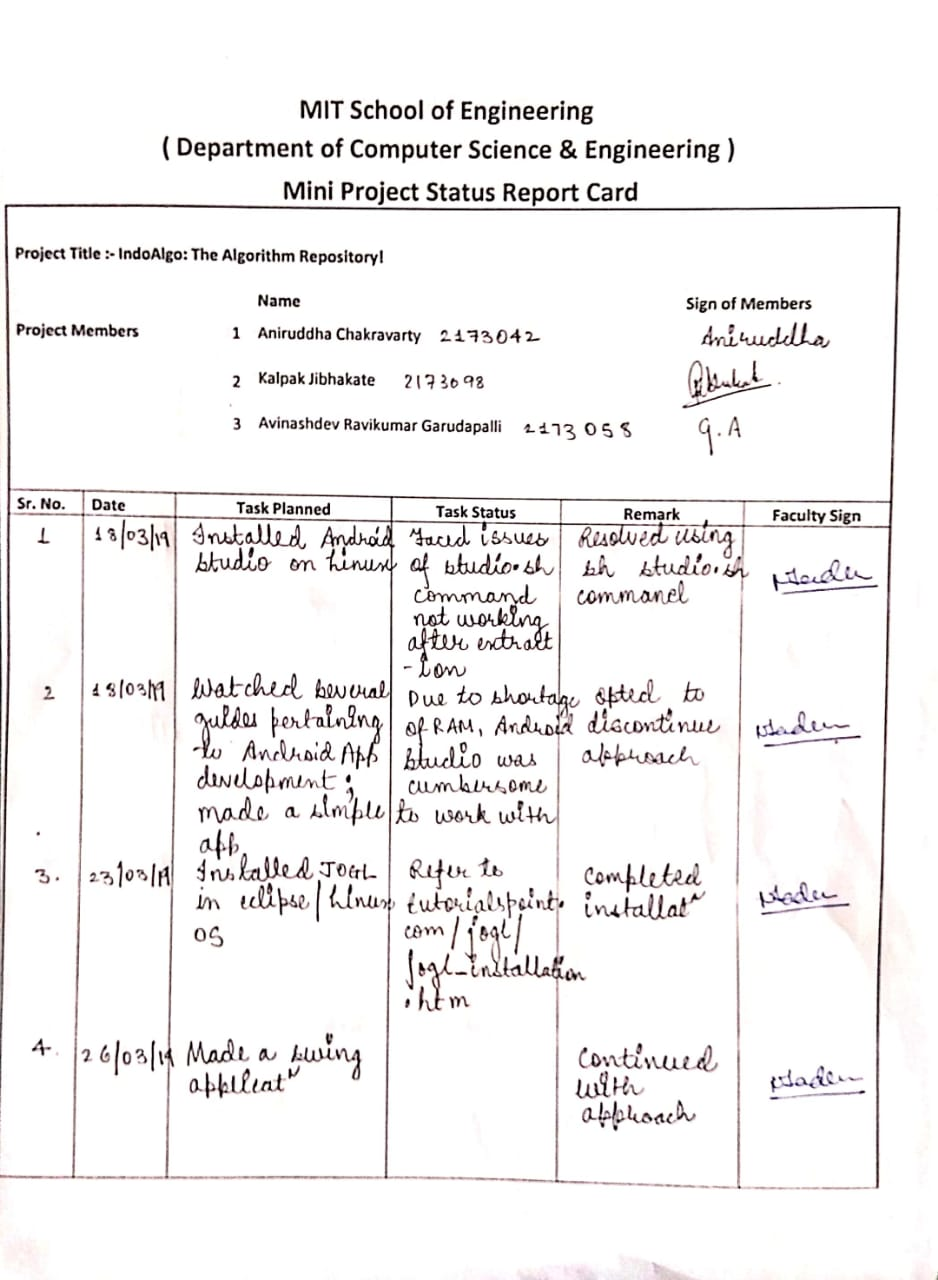 MIT School of Engineering
( Department of Computer Science & Engineering )
Mini Project Status Report Card
Project Title :- IndoAlgo: The Algorithm Repository!
Name
Sign of Members
Project Members
1 Aniruddha Chakravarty 2173042
Aniruddha
2 Kalpak Jibhakate 2173098
3 Avinashdev Ravikumar Garudapalli 2173058
G.A
Sr. No. Date Task Planned Task Status Remark Faculty Sign
1 18/03/19
Installed Android
studio on Linux
Faced issues
of studio.sh
command
not working
after extract
-ion
Resolved using
sh studio.sh
command
2 18/03/19
Watched several
guides pertaining
to Android App
development;
made a simple
app
Due to shortage
of RAM, Android
studio was
cumbersome
to work with
opted to
discontinue
approach
3. 23/03/19
Installed JOGL
in eclipse/Linux
OS
Refer to
tutorialspoint.
com/jogl/
jogl_installation
.htm
completed
installatⁿ
4. 26/03/19
Made a swing
applicatⁿ
continued
with
approach